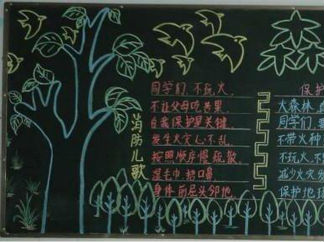 消防儿歌
同学们，不玩火，
不让父母吃苦果，
自我保护是关键，
发生火灾心不乱，
按照顺序慢疏散，
湿毛巾，捂口鼻，
身体
保护
大森林，
同学们，
不带火种
不玩火，不
减少火灾
保护地球